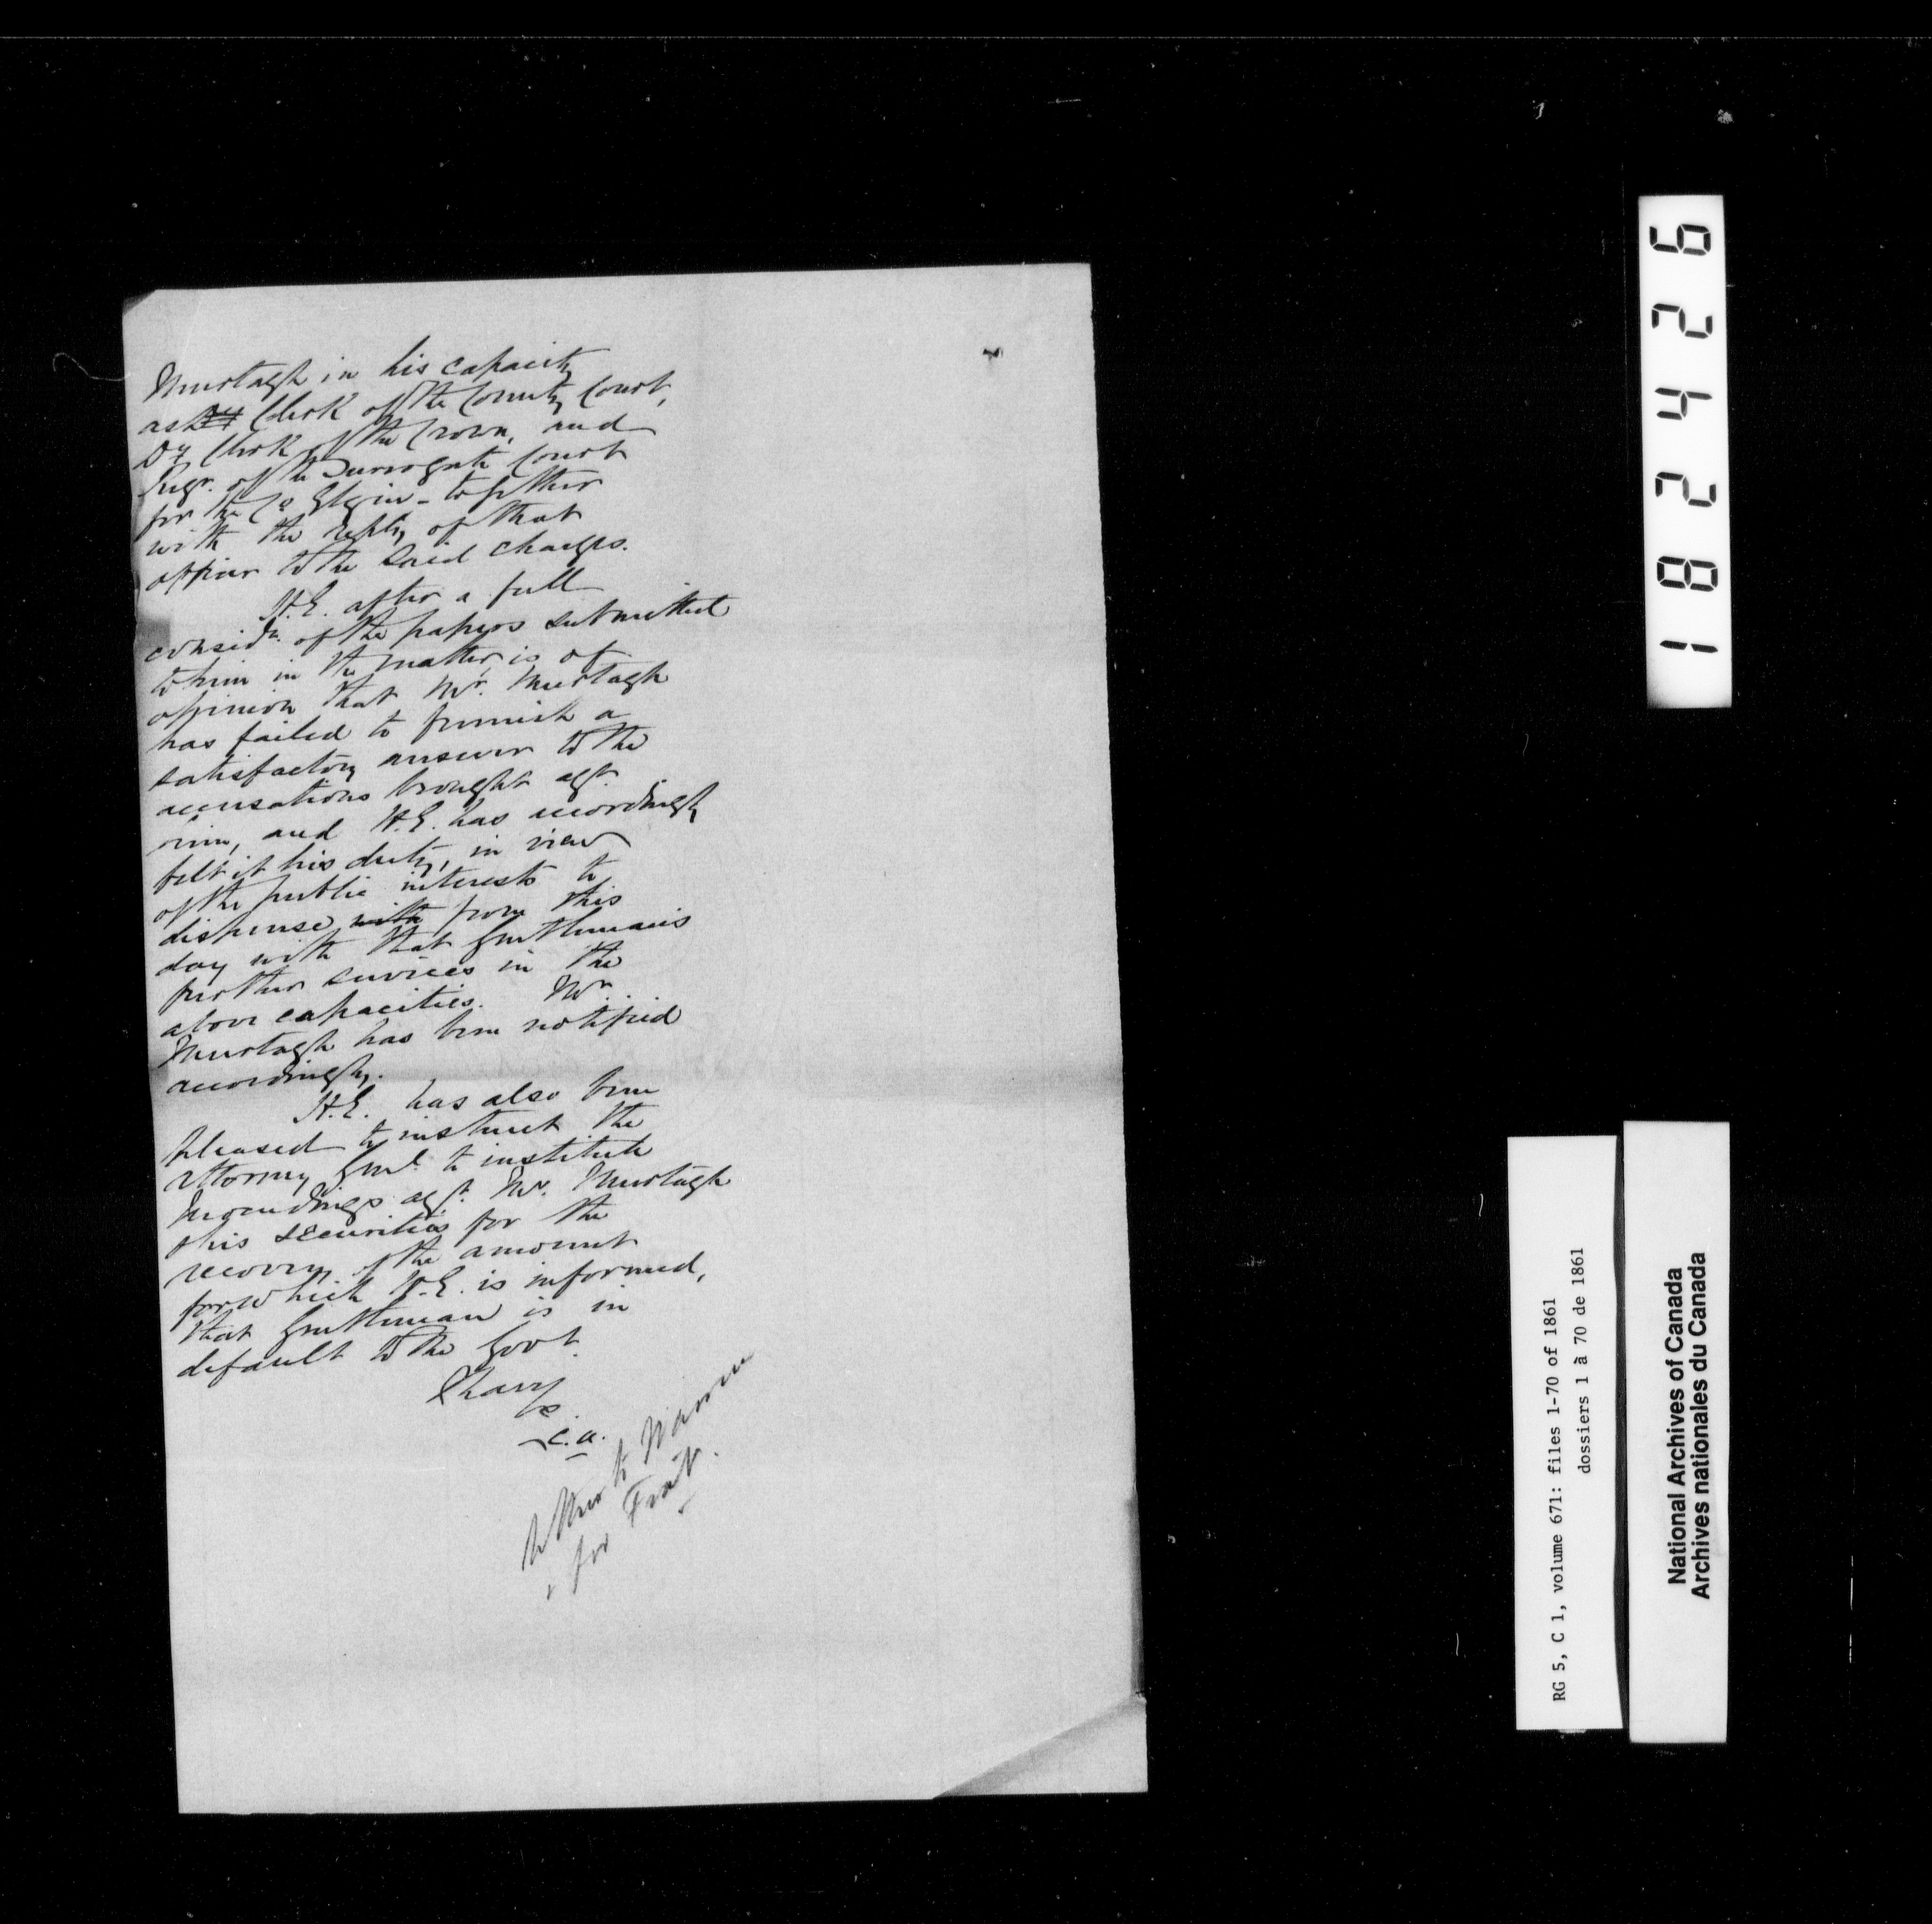 Murtagh in his capacity
as Dy Clerk of the County Court,
Dy Clerk of the Crown, and
Regr. of the Surrogate Court
for the Co Elgin - together
with the reply of that
officer to the said charges.
H.E. after a full
considn. of the papers submitted
to him in the matter, is of
opinion that Mr. Murtagh
has failed to furnish a
satisfactory answer to the
accusations brought agt.
him, and H.E. has accordingly
felt it his duty, in view
of the public interests to
dispense with from this
day with that Gentleman's
further services in the
above capacities. Mr.
Murtagh has been notified
accordingly.
H.E. has also been
pleased to instruct the
Attorney Genl. to institute
proceedings agt. Mr. Murtagh
& his securities for the
recovery of the amount
for which H.E. is informed,
that Gentleman is in
default to the Govt.
C.A.
to Warren
for Fiat.
182426
RG 5, C 1, volume 671: files 1-70 of 1861
dossiers 1 à 70 de 1861
National Archives of Canada
Archives nationales du Canada